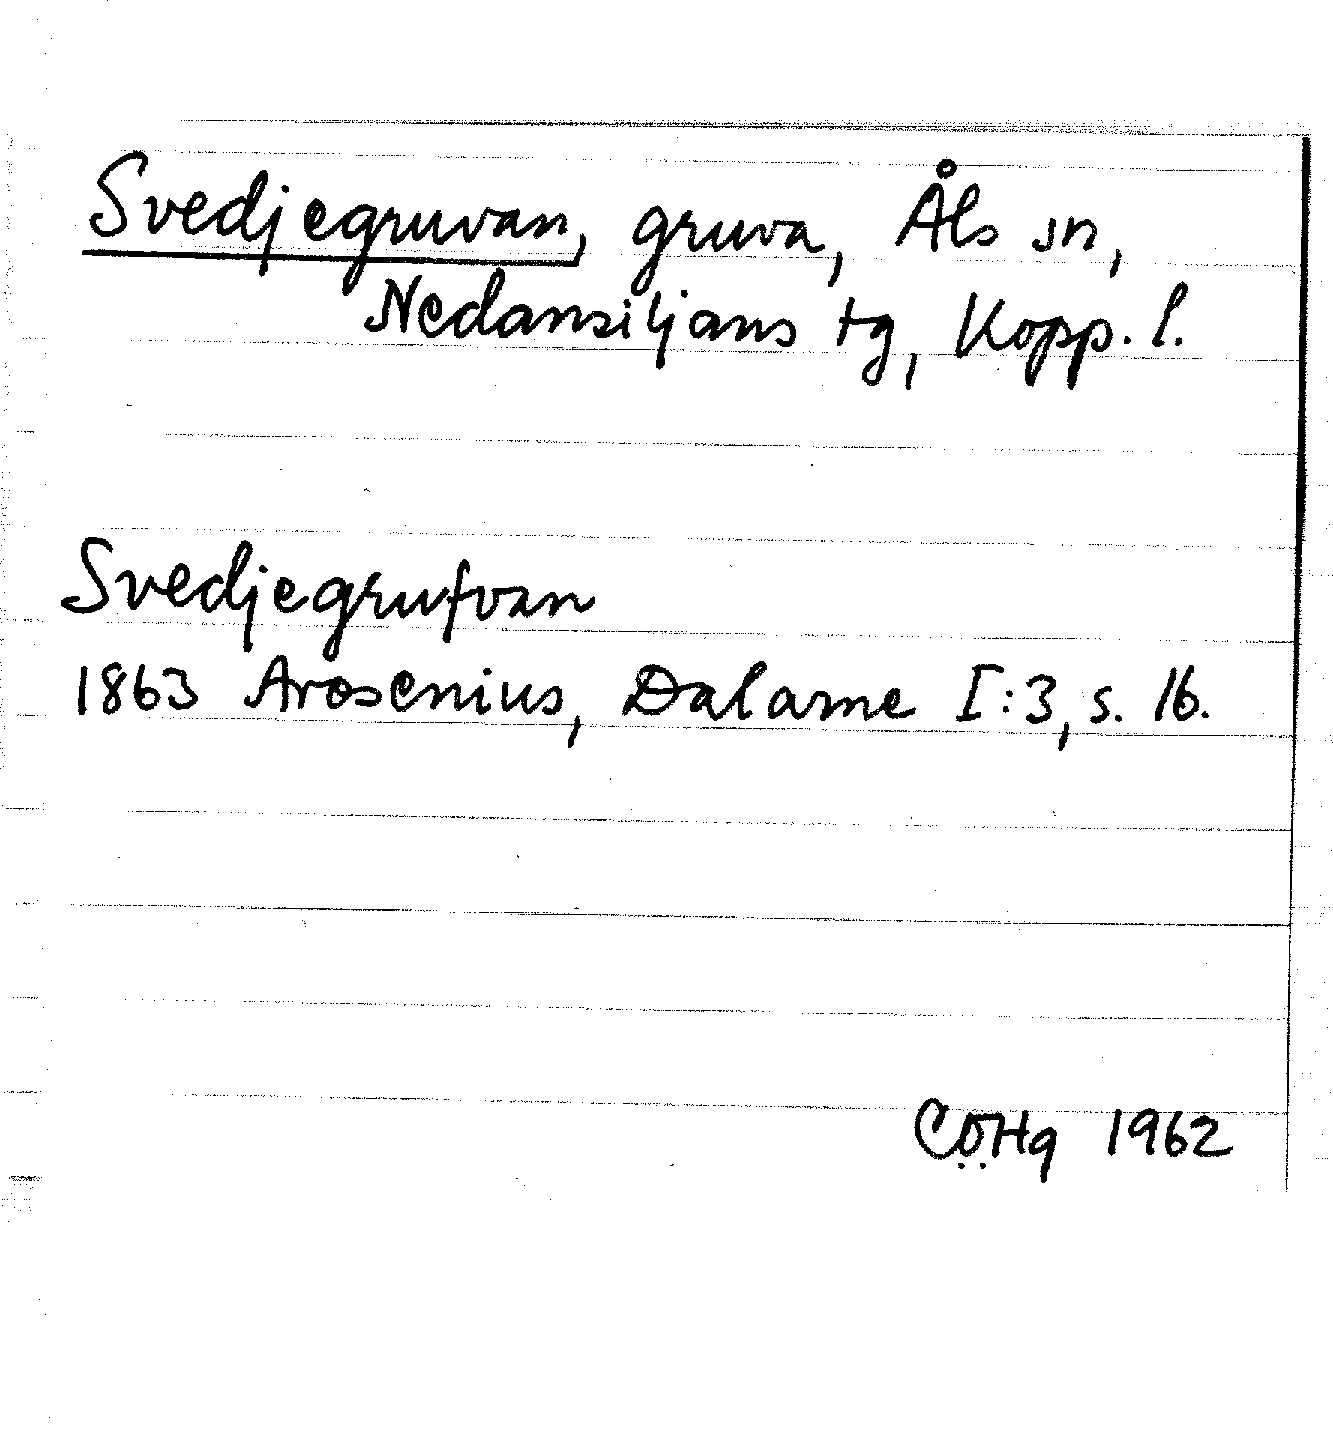 Svedjegruvan, gruva, Åls sn,
Nedansiljans tg, Kopp. l.
Svedjegrufvan
1863 Arosenius, Dalarne I:3, s. 16.
CÖHg 1962